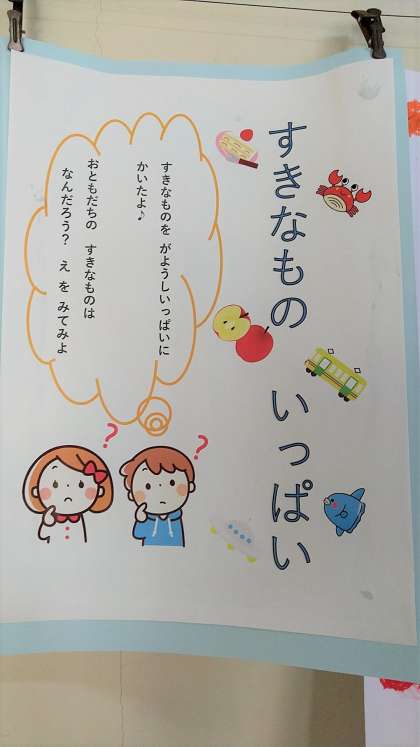 すきなもの いっぱい
すきなものを がようしいっぱいに
かいたよ♪
おともだちの すきなものは
なんだろう? え を みてみよ
? ?